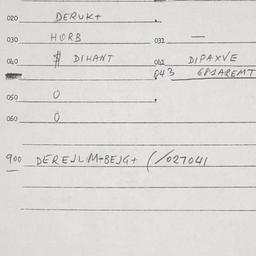 020 DERUK+
030 HORB 031 —
040 $ DIHANT 041 DIPAXVE
043 GPSAREMT
050 0
060 0
900 DEREJLM+BEJG+ (/027041